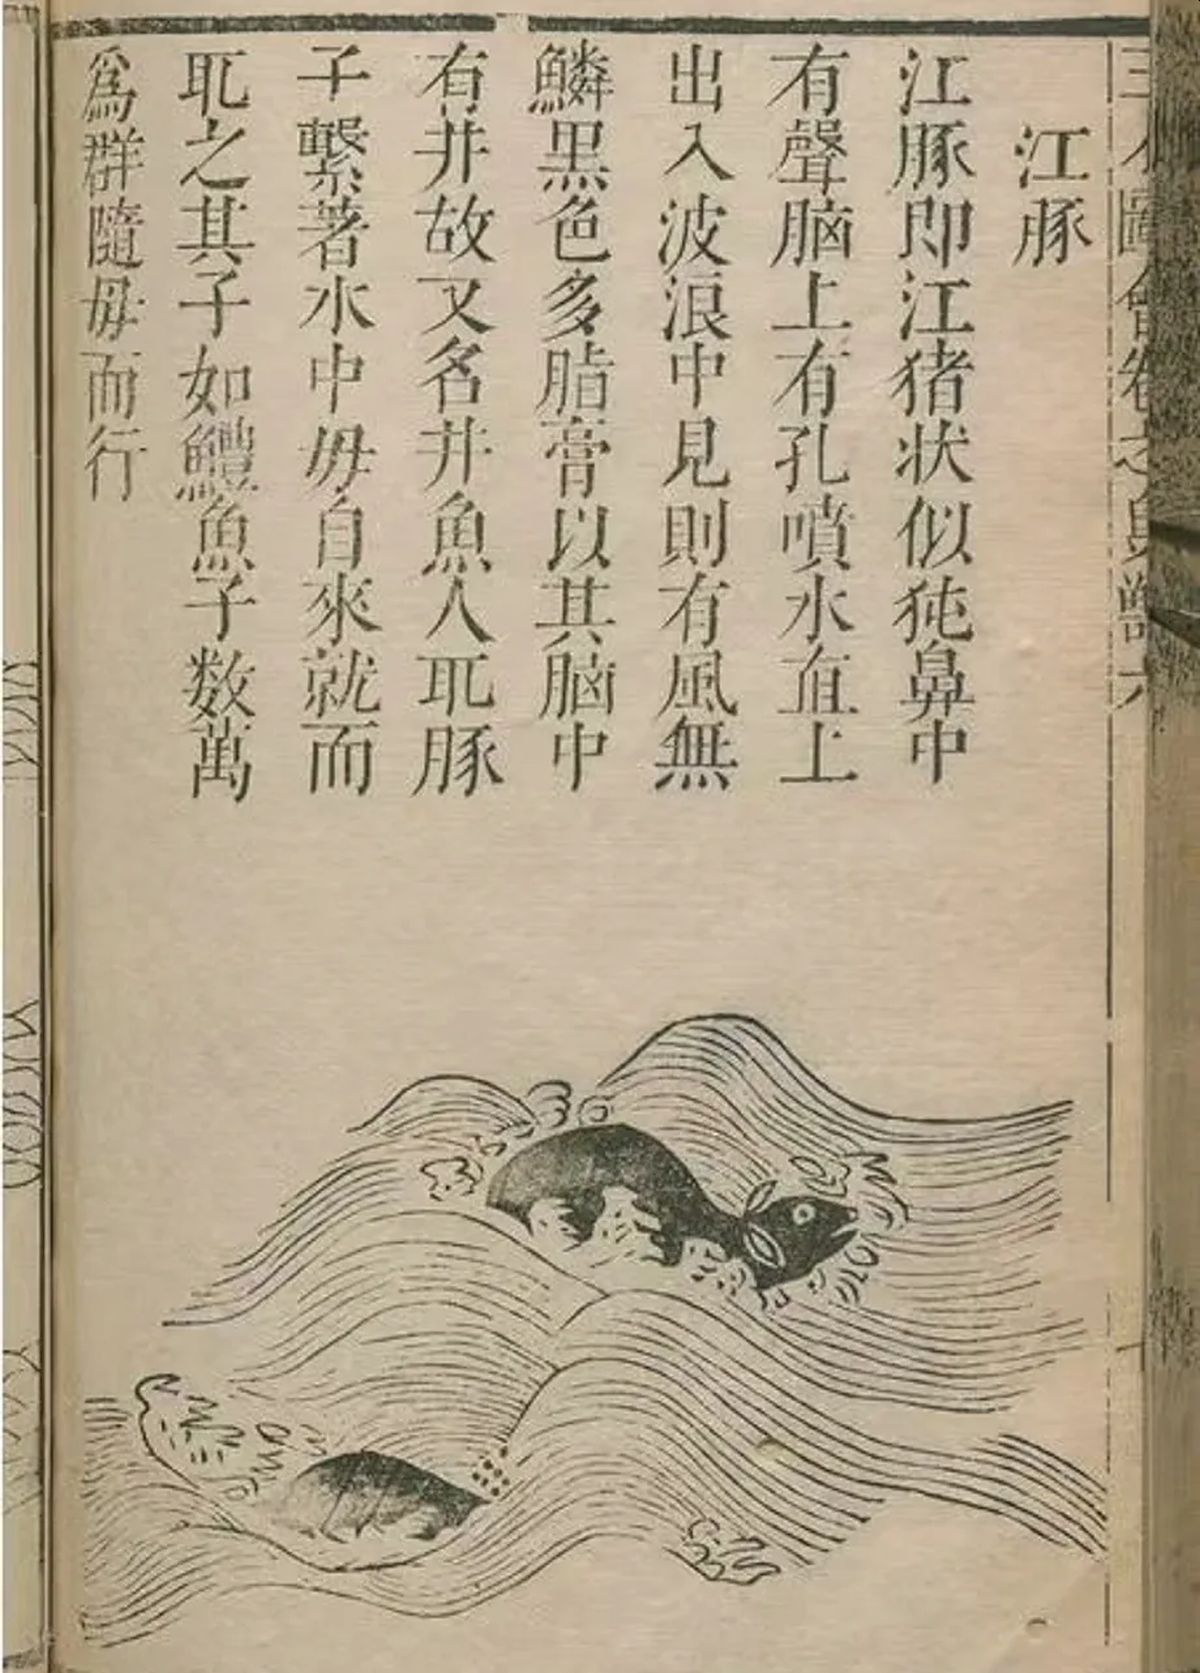 江豚
江豚即江猪状似㹠鼻中
有聲脑上有孔噴水直上
出入波浪中見則有風無
鱗黒色多脂膏以其脑中
有井故又名井魚人耴豚
子繫著水中母自來就而
耴之其子如鱧魚子数萬
爲群隨母而行